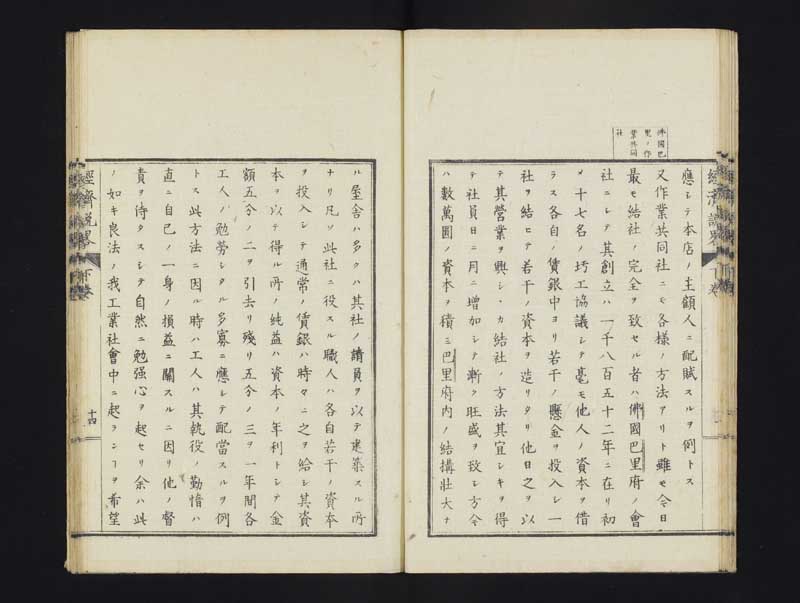 佛國巴
里ノ作
業共同
社
應シテ本店ノ主顧人ニ配賦スルヲ例トス
又作業共同社ニモ各様ノ方法アリト雖モ今日
最モ結社ノ完全ヲ致セル者ハ佛國巴里府ノ會
社ニシテ其創立ハ一千八百五十二年ニ在リ初
メ十七名ノ圬工協議シテ毫モ他人ノ資本ヲ借
ラス各自ノ賃銀中ヨリ若干ノ懸金ヲ投入シ一
社ヲ結ヒテ若干ノ資本ヲ造リタリ他日之ヲ以
テ其營業ヲ興シヽカ結社ノ方法其宜シキヲ得
テ社員日ニ月ニ増加シテ漸ク旺盛ヲ致シ方今
ハ數萬圓ノ資本ヲ積ミ巴里府内ノ結搆壯大ナ
ル屋舎ハ多クハ其社ノ請負ヲ以テ建築スル所
ナリ凡ソ此社ニ役スル職人ハ各自若干ノ資本
ヲ投入シテ通常ノ賃銀ハ時々ニ之ヲ給シ其資
本ヲ以テ得ル所ノ純益ハ資本ノ年利トシテ金
額五分ノ二ヲ引去リ殘リ五分ノ三ヲ一年間各
工人ノ勉勞シタル多寡ニ應シテ配當スルヲ例
トス此方法ニ因ル時ハ工人ハ其執役ノ勤惰ハ
直ニ自己ノ一身ノ損益ニ關スルニ因リ他ノ督
責ヲ待タスシテ自然ニ勉强心ヲ起セリ余ハ此
ノ如キ良法ノ我工業社會中ニ起ランヿヲ希望
經濟説畧 下卷
十四